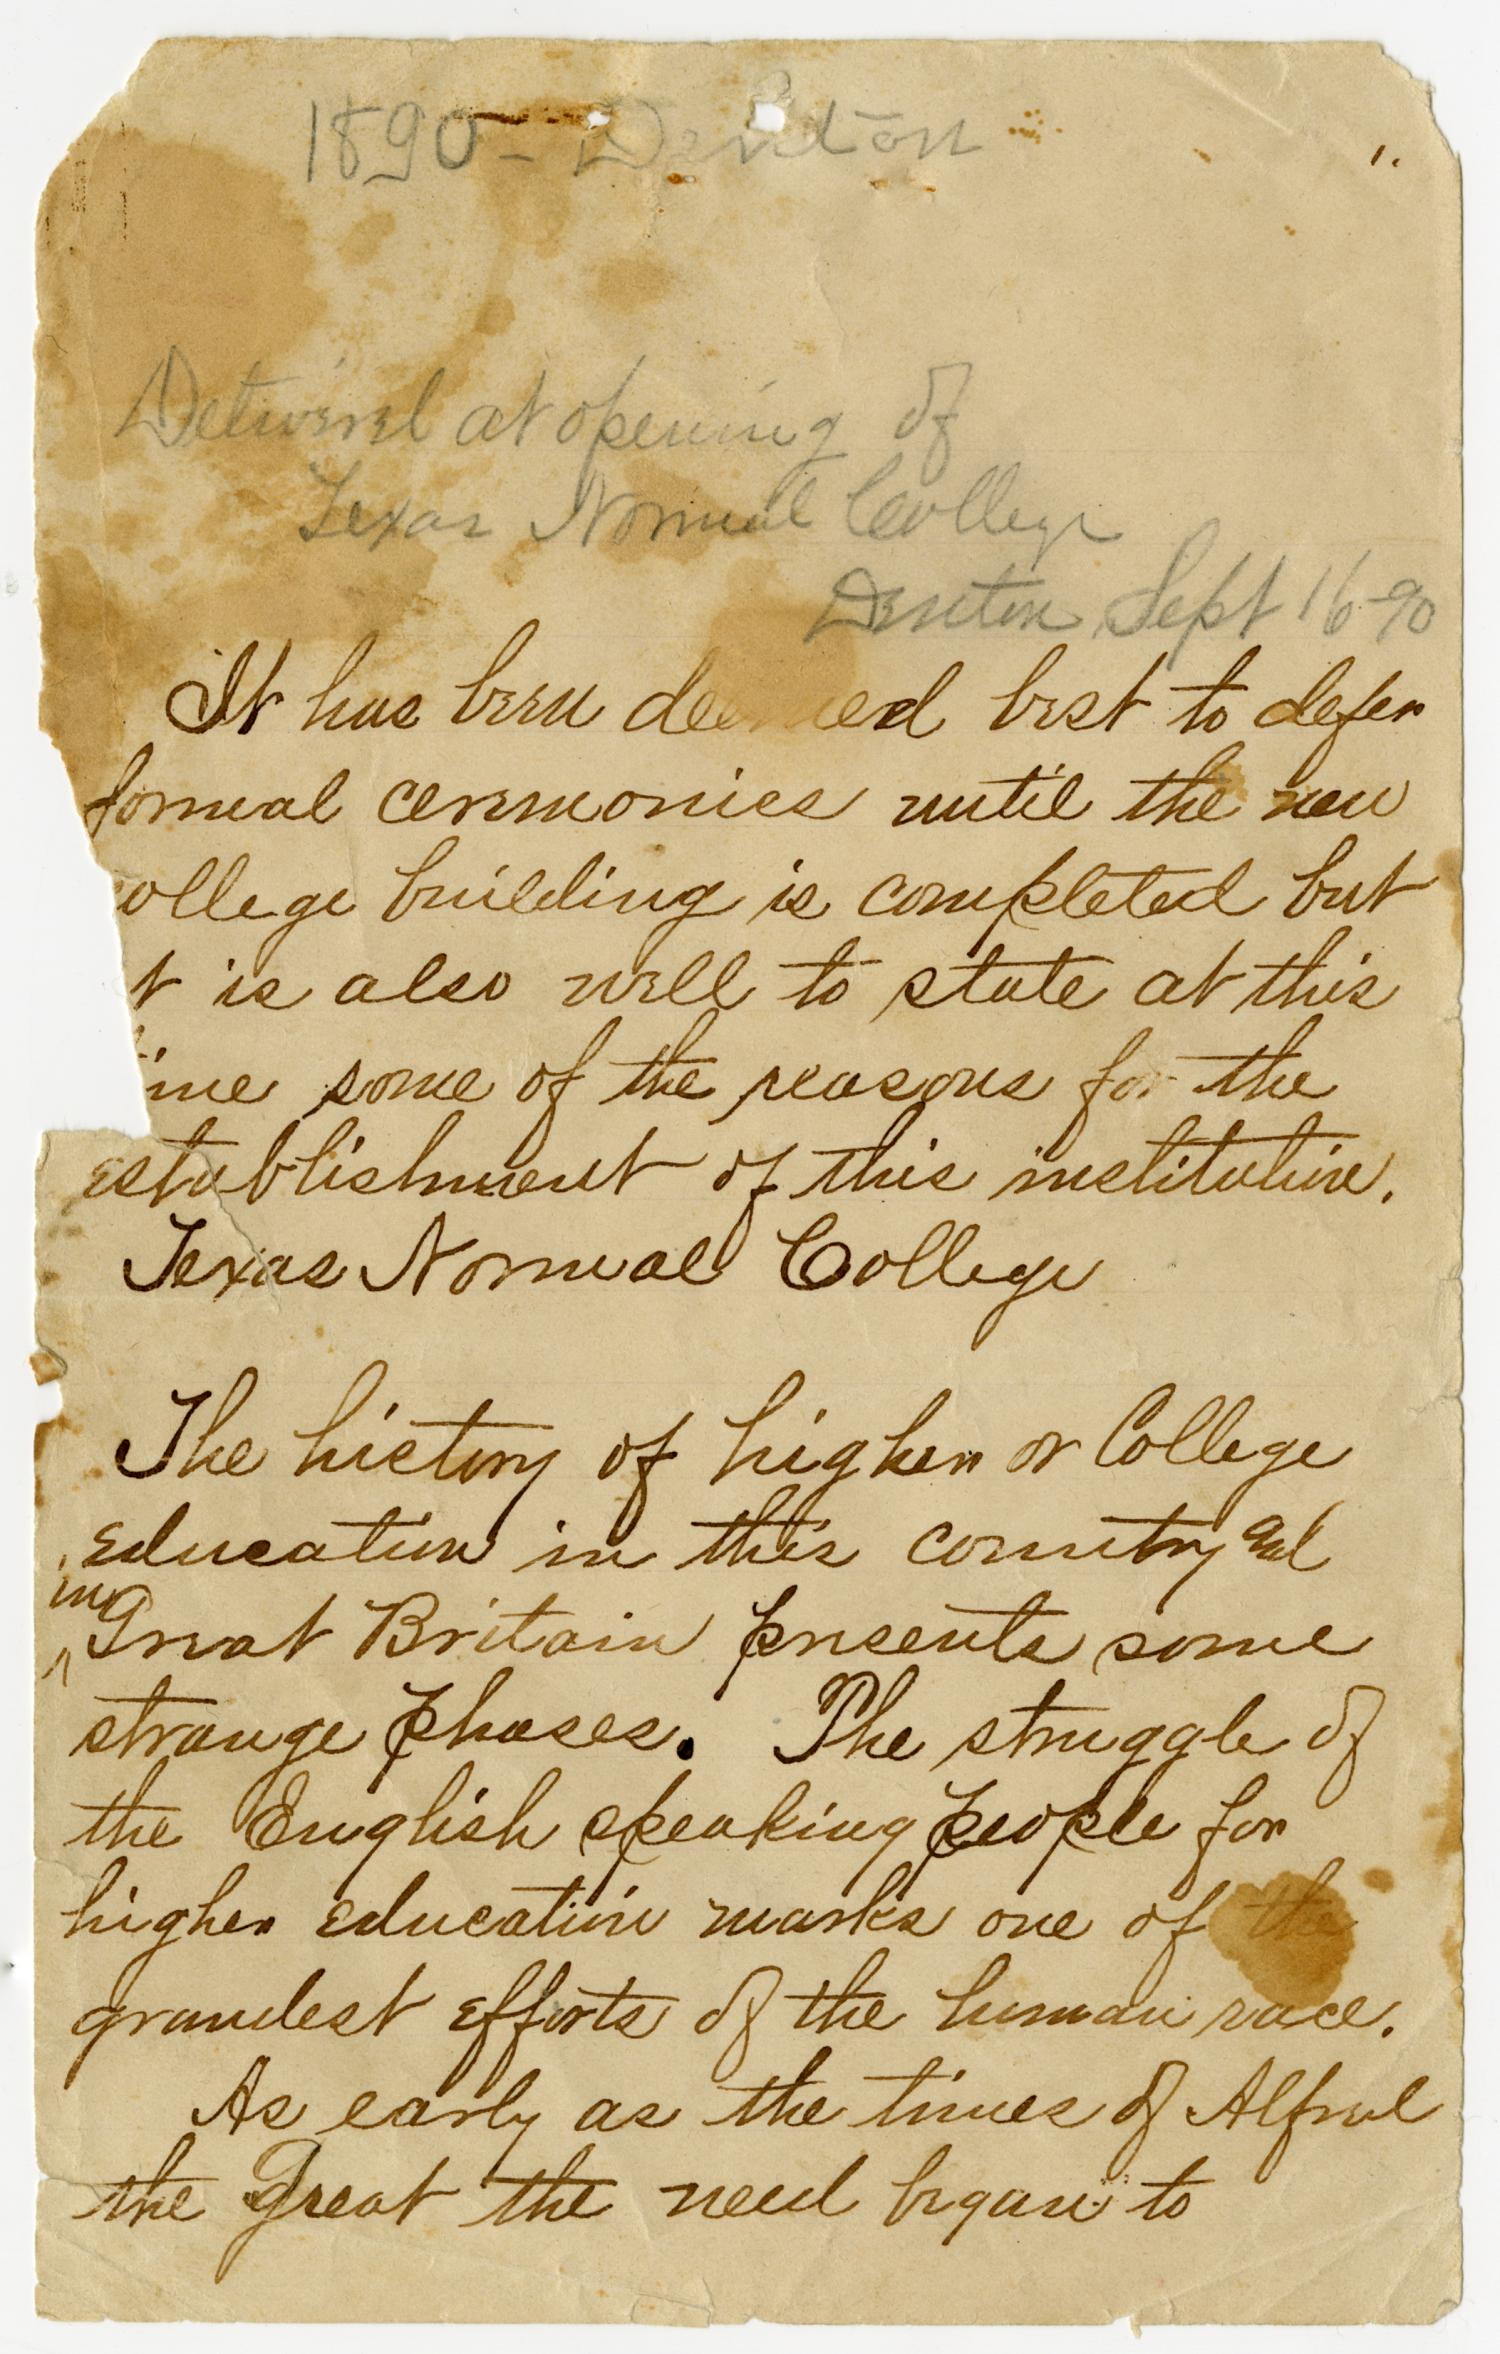 1890 - Denton
1.
Deliverd at opening of
Texas Normal College
Denton Sept 16-90
It has been deemed best to defer
formal ceremonies until the new
ollege building is completed but
t is also well to state at this
ime some of the reasons for the
establishment of this institution.
Texas Normal College
The history of higher or College
education in this country and
in Great Britain presents some
strange phases. The struggle of
the English speaking people for
higher education marks one of the
grandest efforts of the human race.
As early as the times of Alfred
the Great the need began to